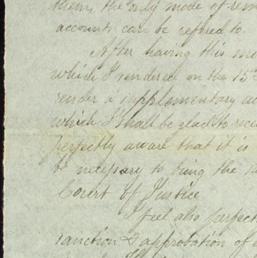 them, the only mode of rem
accounts can be refused to
After having this mo
which I rendered on the 15th
render a supplementary ac
which I shall be glad to rece
perfectly aware that it is
be necessary to bring the
Court of Justice
I feel also perfect
sanction & approbation of